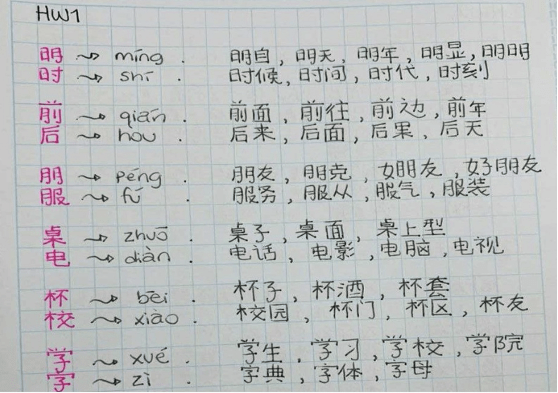 HW1
明 → míng . 明白, 明天, 明年, 明显, 明明
时 → shí . 时候, 时间, 时代, 时刻
前 → qián . 前面, 前往, 前边, 前年
后 → hòu . 后来, 后面, 后果, 后天
朋 → péng . 朋友, 朋克, 女朋友, 好朋友
服 → fú . 服务, 服从, 服气, 服装
桌 → zhuō . 桌子, 桌面, 桌上型
电 → diàn . 电话, 电影, 电脑, 电视
杯 → bēi . 杯子, 杯酒, 杯套
校 → xiào . 校园, 杯门, 杯区, 杯友
学 → xué . 学生, 学习, 学校, 学院
字 → zì . 字典, 字体, 字母